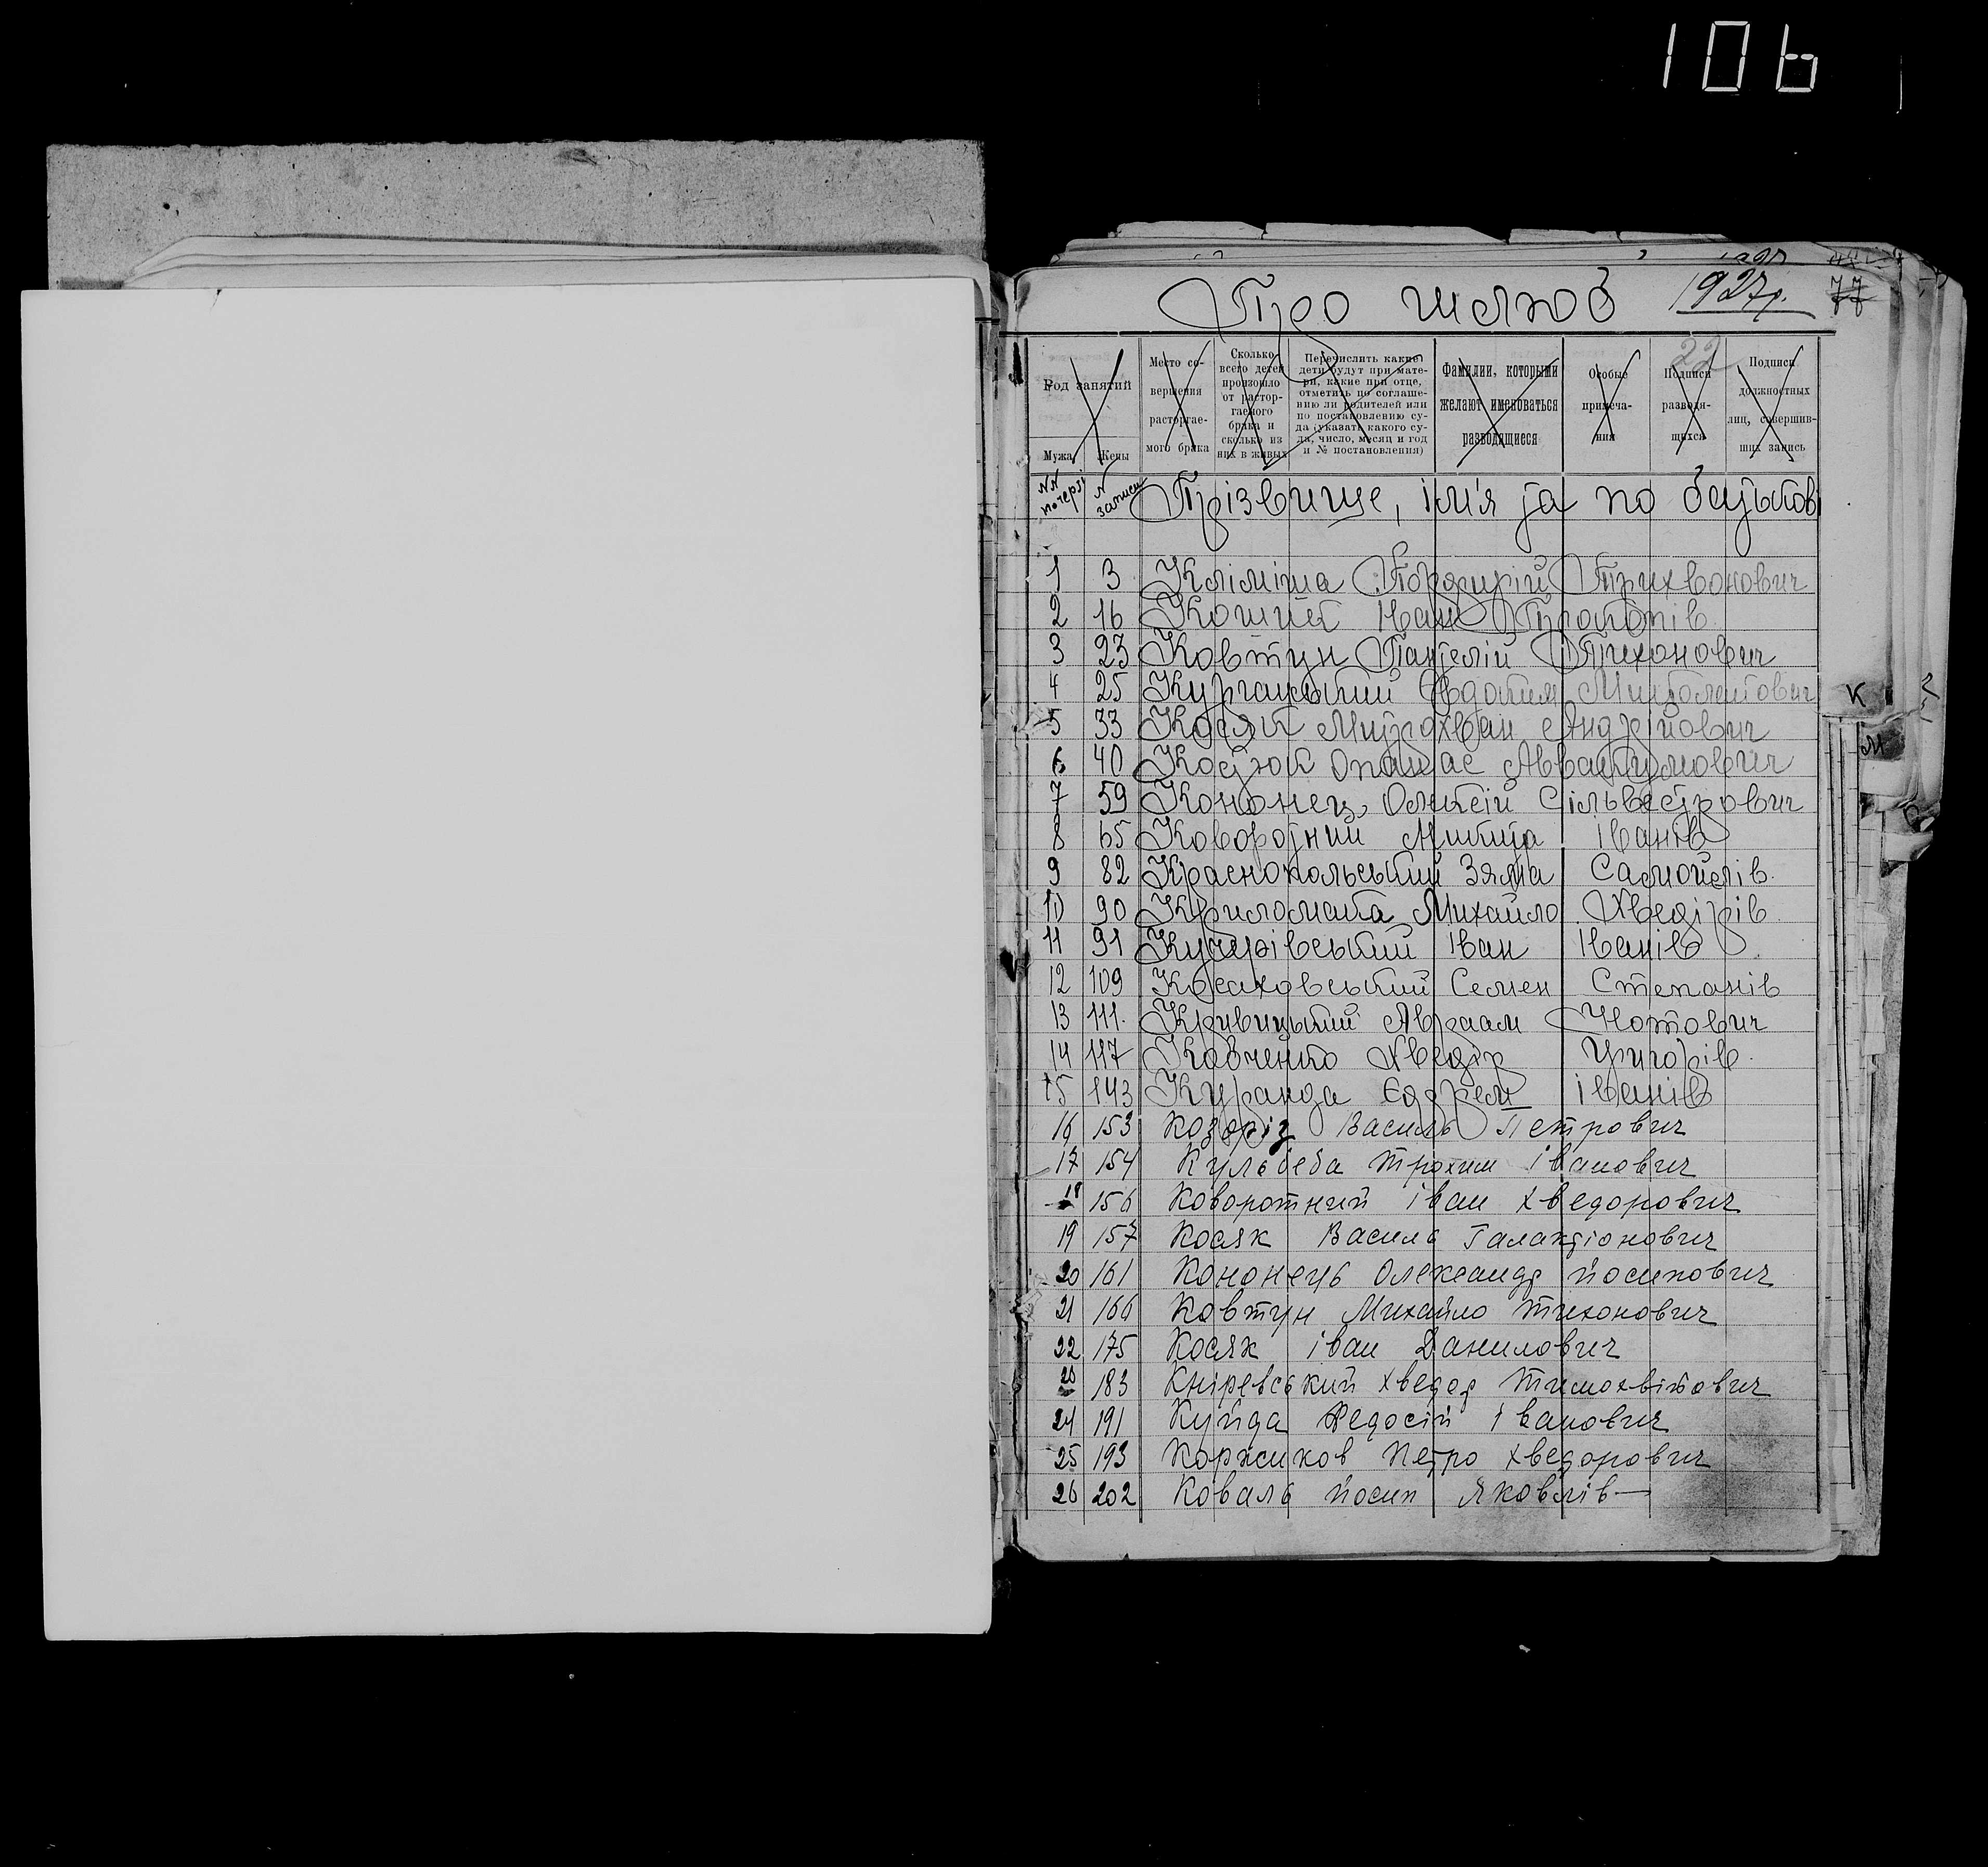 106
Про шлюб 1927р. 77
22
Род занятий
Мужа Жены
Место совершения расторгаемого брака
Сколько всего детей произошло от расторгаемого брака и сколько из них в живых
Перечислить какие дети будут при матери, какие при отце, отметить по соглашению ли родителей или по постановлению суда (указать какого суда, число, месяц и год и № постановления)
Фамилии, которыми желают именоваться разводящиеся
Особые примечания
Подписи разводящихся
Подписи должностных лиц, совершивших запись
NN по черзі N записи Прізвище, ім'я та по батьков
1 3 Кліміша Порфирій Трихвонович
2 16 Кошит Іван Прокопів
3 23 Ковтун Пантелій Тихонович
4 25 Курганський Євдоким Миколаїович
5 33 Косяк Митрохван Андрійович
6 40 Костюк Опанас Аввакумович
7 59 Кононец, Олексій Сільвестрович
8 65 Коворотний Микита Іванів
9 82 Краснопольський Зяма Самойлів.
10 90 Криломака Михайло Хведірів.
11 91 Кучурівський Іван Іванів
12 109 Косаховський Семен Степанів
13 111. Кривицький Авраам Нотович
14 117 Кавченко Хведір Григорів.
15 143 Куранда Єфрем Іванів
16 153 Козоріз Василь Петрович
17 154 Кульбеба Трохим Іванович
18 156 Коворотний Іван Хведорович
19 157 Косяк Василь Галактіонович
20 161 Кононець Олександр Йосипович
21 166 Ковтун Михайло Тихонович
22 175 Косяк Іван Данилович
23 183 Кніревський Хведор Тимохвійович
24 191 Куйда Федосій Іванович
25 193 Коржиков Петро Хведорович
26 202 Коваль Йосип Яковлів—
К
М